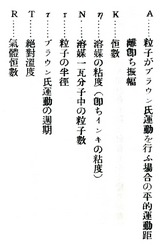 A……粒子がブラウン氏運動を行ふ場合の平的運動距
離卽ち振幅
K……恒數
η……溶媒の粘度(卽ちインキの粘度)
N……溶媒一瓦分子中の粒子數
r……粒子の半徑
τ……ブラウン氏運動の週期
T……絕對溫度
R……氣體恒數